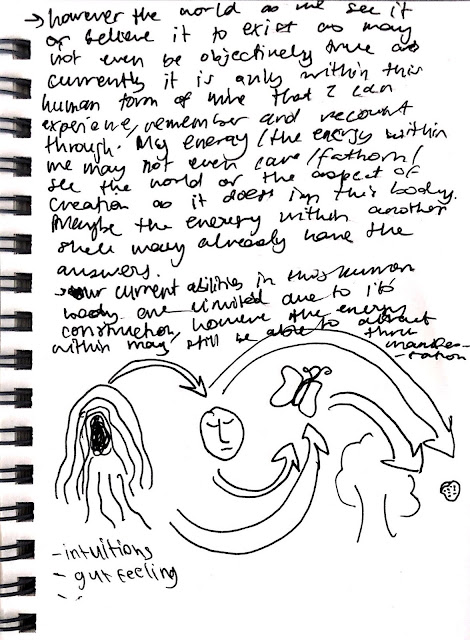 → however the world as we see it
or believe it to exist as may
not even be objectively true as
currently it is only within this
human form of mine that I can
experience, remember and recount
through. My energy / the energy within
me may not even care / fathom /
see the world or the aspect of
creation as it does in this body.
Maybe the energy within another
shell may already have the
answers.
→ our current abilities in this human
body are limited due to its
construction, however the energy
within may still be able to attract thru
manifes-
-tation
- intuitions
- gut feeling
-